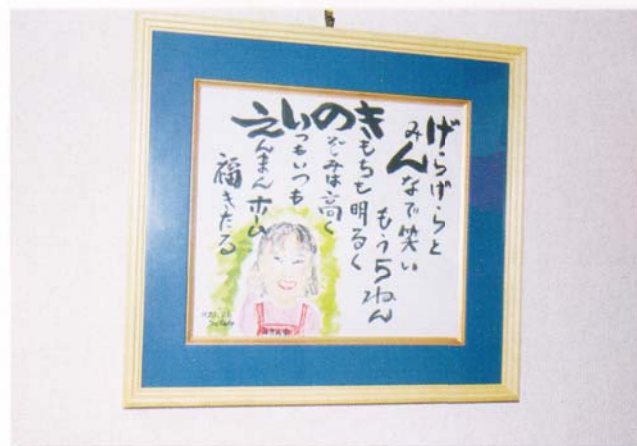 げらげらと
みんなで笑い
もう5ねん
きもちも明るく
のぞみは高く
いつもいつも
えんまんホーム
福きたる